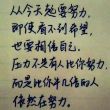 从今天起要努力，
即使看不到希望，
也要相信自己。
压力不是有人比你努力，
而是比你牛几倍的人
依然在努力。